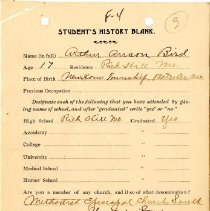 F-4
3
STUDENT'S HISTORY BLANK.
Name (in full) Arthur Orrson Bird
Age 17 Residence Rich Hill Mo.
Place of Birth Township,
Previous Occupation
Designate each of the following that you have attended by giving name of school, and after "graduated" write "yes" or "no"
High School Rich Hill Mo. Graduated Yes.
Academy
College
University
Medical School
Nurses' School
Are you a member of any church, and if so of what denomination?
Methodist Episcopal Church South